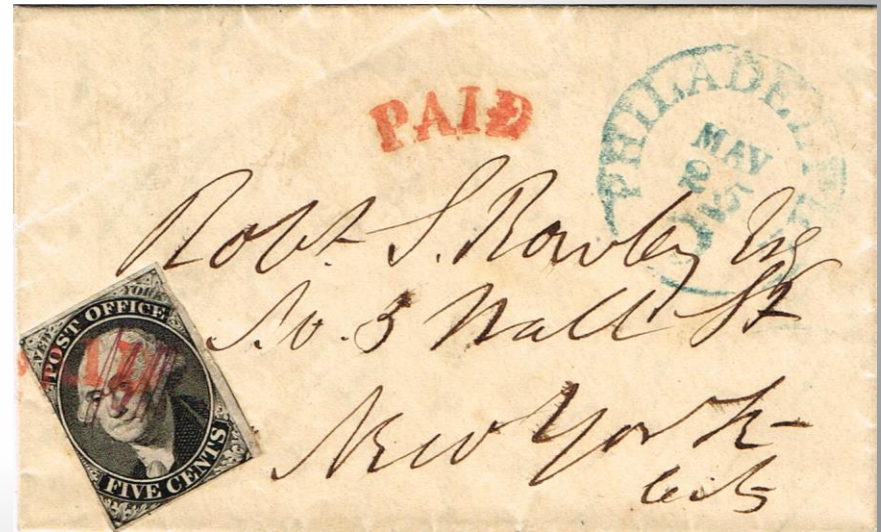 PAID
PHILADELPHIA
MAY
25
Robt. S. Rowley Esq
No. 3 Wall St
New York
City
NEW YORK
POST OFFICE
FIVE CENTS